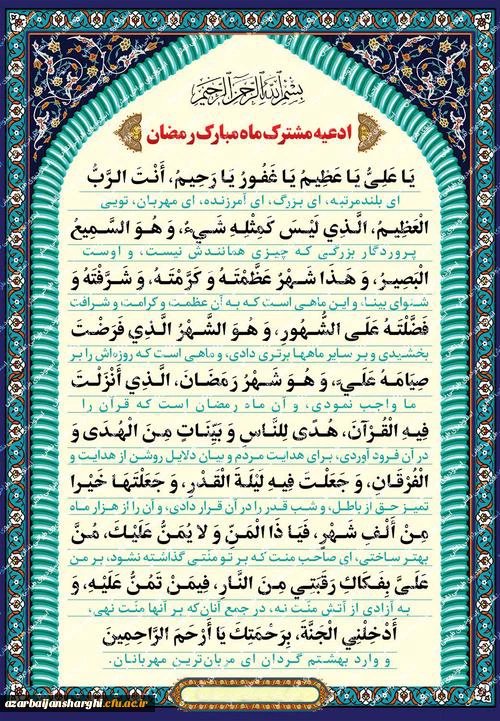 بِسْمِ اللَّهِ الرَّحْمَنِ الرَّحِيمِ
ادعیه مشترک ماه مبارک رمضان
يَا عَلِيُّ يَا عَظِيمُ يَا غَفُورُ يَا رَحِيمُ، أَنْتَ الرَّبُّ
ای بلندمرتبه، ای بزرگ، ای آمرزنده، ای مهربان، تویی
الْعَظِيمُ، الَّذِي لَيْسَ كَمِثْلِهِ شَيْءٌ، وَ هُوَ السَّمِيعُ
پروردگار بزرگی که چیزی همانندش نیست، و اوست
الْبَصِيرُ، وَ هَذَا شَهْرٌ عَظَّمْتَهُ وَ كَرَّمْتَهُ، وَ شَرَّفْتَهُ وَ
شنوای بینا، و این ماهی است که به آن عظمت و کرامت و شرافت
فَضَّلْتَهُ عَلَى الشُّهُورِ، وَ هُوَ الشَّهْرُ الَّذِي فَرَضْتَ
بخشیدی و بر سایر ماهها برتری دادی، و ماهی است که روزه‌اش را بر
صِيَامَهُ عَلَيَّ، وَ هُوَ شَهْرُ رَمَضَانَ، الَّذِي أَنْزَلْتَ
ما واجب نمودی، و آن ماه رمضان است که قرآن را
فِيهِ الْقُرْآنَ، هُدًى لِلنَّاسِ وَ بَيِّنَاتٍ مِنَ الْهُدَى وَ
در آن فرود آوردی، برای هدایت مردم و بیان دلایل روشن از هدایت و
الْفُرْقَانِ، وَ جَعَلْتَ فِيهِ لَيْلَةَ الْقَدْرِ، وَ جَعَلْتَهَا خَيْرا
تمیز حق از باطل، و شب قدر را در آن قرار دادی، و آن را از هزار ماه
مِنْ أَلْفِ شَهْرٍ، فَيَا ذَا الْمَنِّ وَ لا يُمَنُّ عَلَيْكَ، مُنَّ
بهتر ساختی، ای صاحب منت که بر تو منتی گذاشته نشود، بر من
عَلَيَّ بِفَكَاكِ رَقَبَتِي مِنَ النَّارِ، فِيمَنْ تَمُنُّ عَلَيْهِ، وَ
به آزادی از آتش منّت نه، در جمع آنان‌که بر آنها منّت نهی،
أَدْخِلْنِي الْجَنَّةَ، بِرَحْمَتِكَ يَا أَرْحَمَ الرَّاحِمِينَ
و وارد بهشتم گردان ای مهربان‌ترین مهربانان.
azarbaijansharghi.cfu.ac.ir